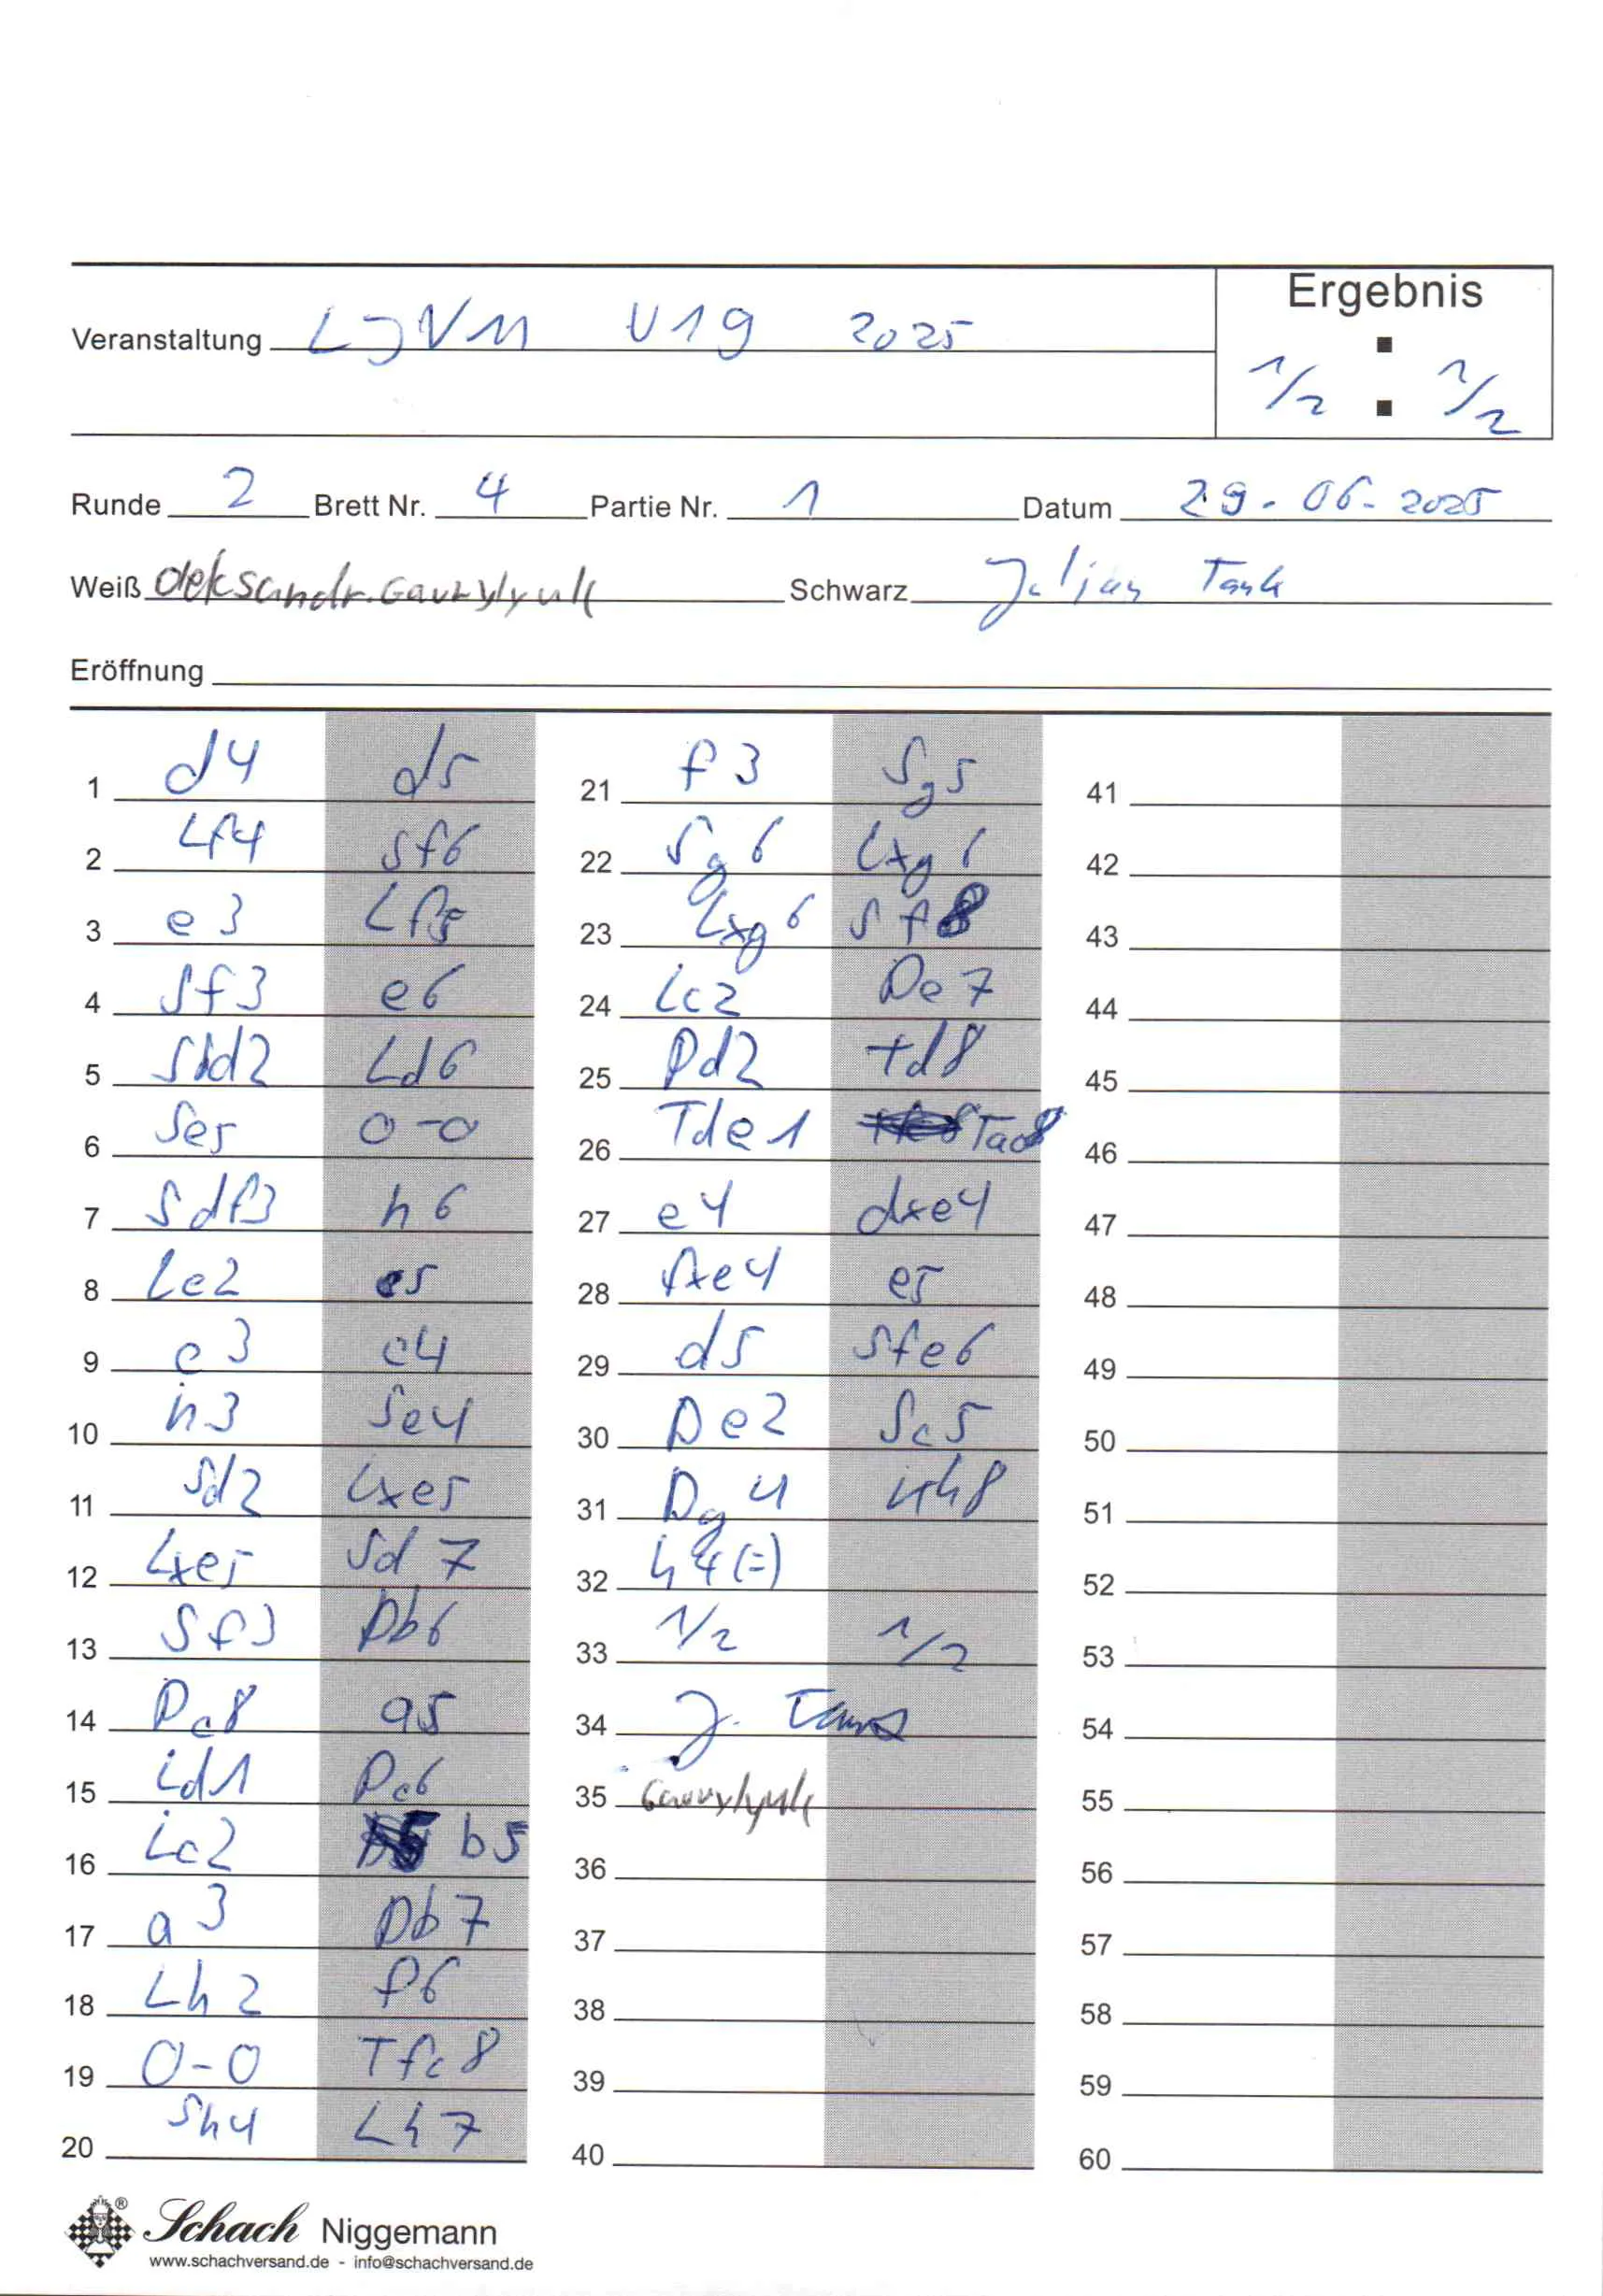 Ergebnis
Veranstaltung LJVM U19 2025
1/2 : 1/2
Runde 2 Brett Nr. 4 Partie Nr. 1 Datum 29.06.2025
Weiß Schwarz Julian Tank
Eröffnung
1 d4 d5 21 f3 Sg5 41
2 Lf4 Sf6 22 Sg6 Lxg6 42
3 e3 Lf5 23 Lxg6 Sf8 43
4 Sf3 e6 24 Lc2 De7 44
5 Sbd2 Ld6 25 Dd2 td8 45
6 Se5 0-0 26 Tde1 Tac8 46
7 Sdf3 h6 27 e4 dxe4 47
8 Le2 c5 28 fxe4 e5 48
9 c3 c4 29 d5 Sfe6 49
10 h3 Se4 30 De2 Sc5 50
11 Sd2 Lxe5 31 Dg4 Kh8 51
12 Lxe5 Sd7 32 h4(=) 52
13 Sf3 Db6 33 1/2 1/2 53
14 Dc8 a5 34 J. Tank 54
15 Ld1 Dc6 35 55
16 Lc2 b5 36 56
17 a3 Db7 37 57
18 Lh2 f6 38 58
19 0-0 Tfc8 39 59
20 Sh4 Lh7 40 60
Schach Niggemann
www.schachversand.de - info@schachversand.de